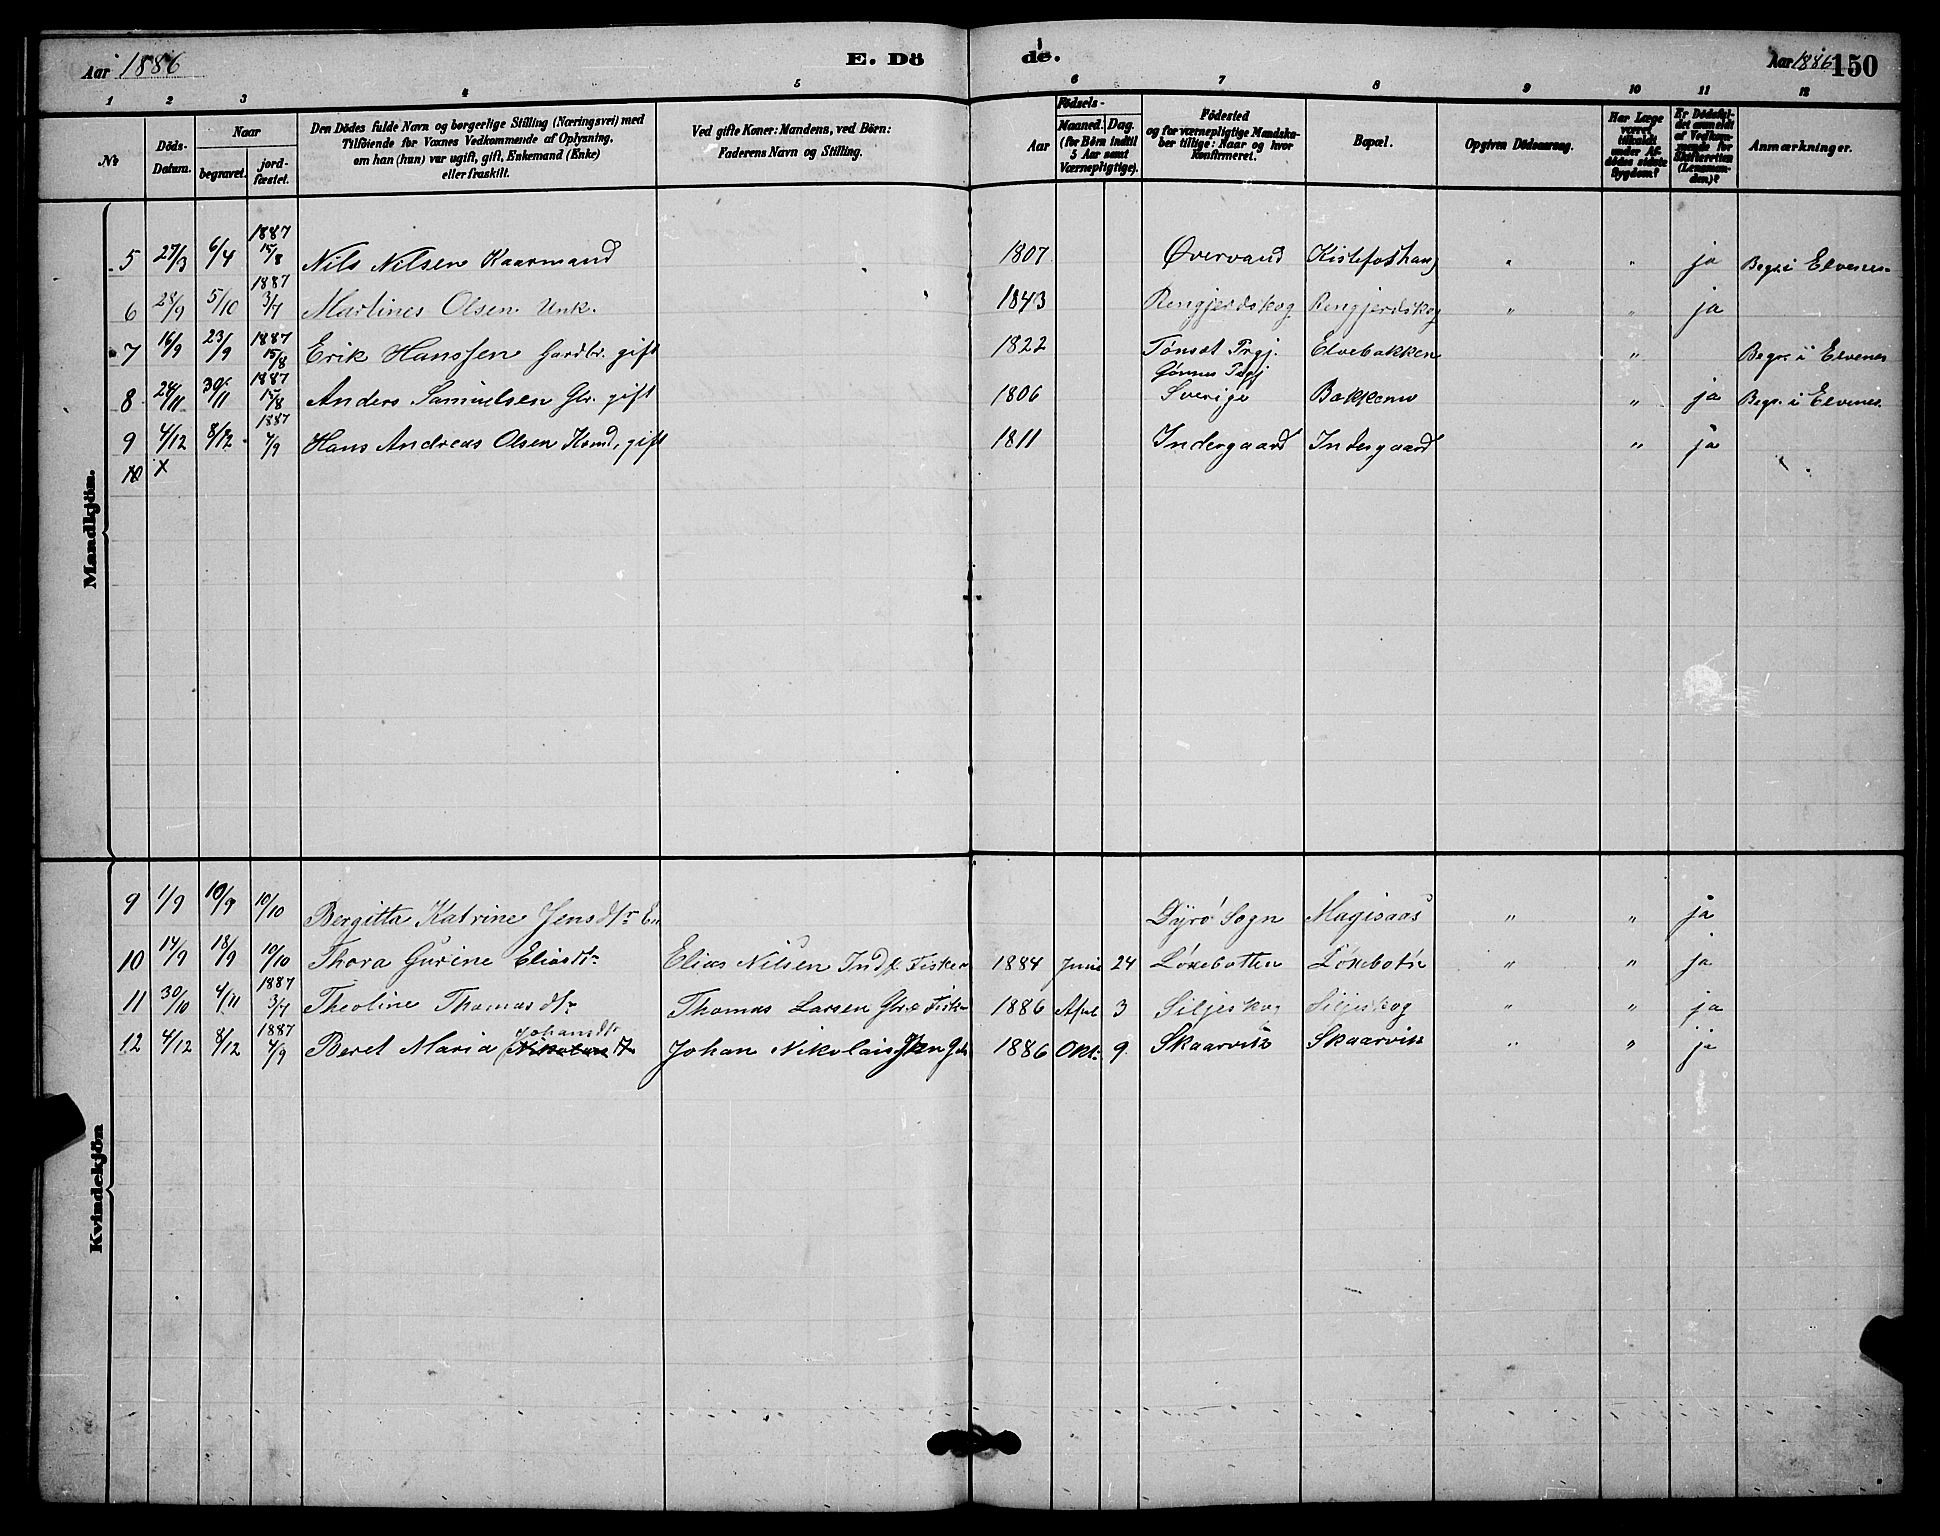 Aar 1886 E. Dö de. Aar 1886 150
1 2 3 4 5 6 7 8 9 10 11 12
No
Döds-Datum.
Naar
begravet. jordfæstet.
Den Dödes fulde Navn og borgerlige Stilling (Næringsvei) med
Tilföiende for Voxnes Vedkommende af Oplysning,
om han (hun) var ugift, gift, Enkemand (Enke)
eller fraskilt.
Ved gifte Koner: Mandens, ved Börn:
Faderens Navn og Stilling.
Födsels-
Aar Maaned. Dag.
(for Börn indtil
5 Aar samt
Værnepligtige).
Födested
og for værnepligtige Mandskaber
tillige: Naar og hvor
konfirmeret.
Bopæl.
Opgiven Dödsaarsag.
Har Læge
været
tilkaldt
under Afdödes
sidste
Sygdom?
Er Dödsfaldet
anmeldt
af Vedkommende
for
Skifteretten
(Lensmanden)?
Anmærkninger.
Mandkjön.
5 27/3 6/4 1887 15/8 Nils Nilsen Kaarmand 1807 Øvervand Kistefoshaug " " ja Begr. i Elvenes
6 28/9 5/10 1887 3/7 Martines Olsen Unk. 1843 Rengjerdskog Rengjerdskog " " ja
7 16/9 23/9 1887 15/8 Erik Hanssen Gardbr. gift 1822 Tønset Prgj. Elvebakken " Begr. i Elvenes
8 24/11 30/11 1887 15/8 Anders Samuelsen Gbr. gift 1806 Prgj Sverige Bakken " ja Begr. i Elvenes.
9 4/12 8/12 1887 4/9 Hans Andreas Olsen gift 1811 Indergaard Indergaard " ja
10 x
Kvindekjön
9 1/9 10/9 10/10 Bergitta Katrine Jensdtr Dyrö Sogn " " ja
10 14/9 18/9 10/10 Thora Gurine Eliasdtr Elias Nilsen Ind. Fisker 1884 Juni 24 Lönebotten Lönebotn " " ja
11 30/10 4/11 1887 3/7 Theoline Thomasdtr Thomas Larsen Gbr. & Fisker 1886 April 3 Siljeskog Siljeskog " " ja
12 4/12 8/12 1887 4/9 Beret Maria Johansdtr Johan Nikolaissen 1886 Okt. 9 Skaarvik Skaarvik " " ja